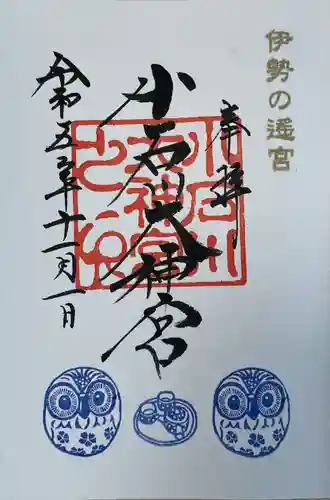 伊勢の遥宮
奉拝
小石川大神宮
令和五年十一月一日